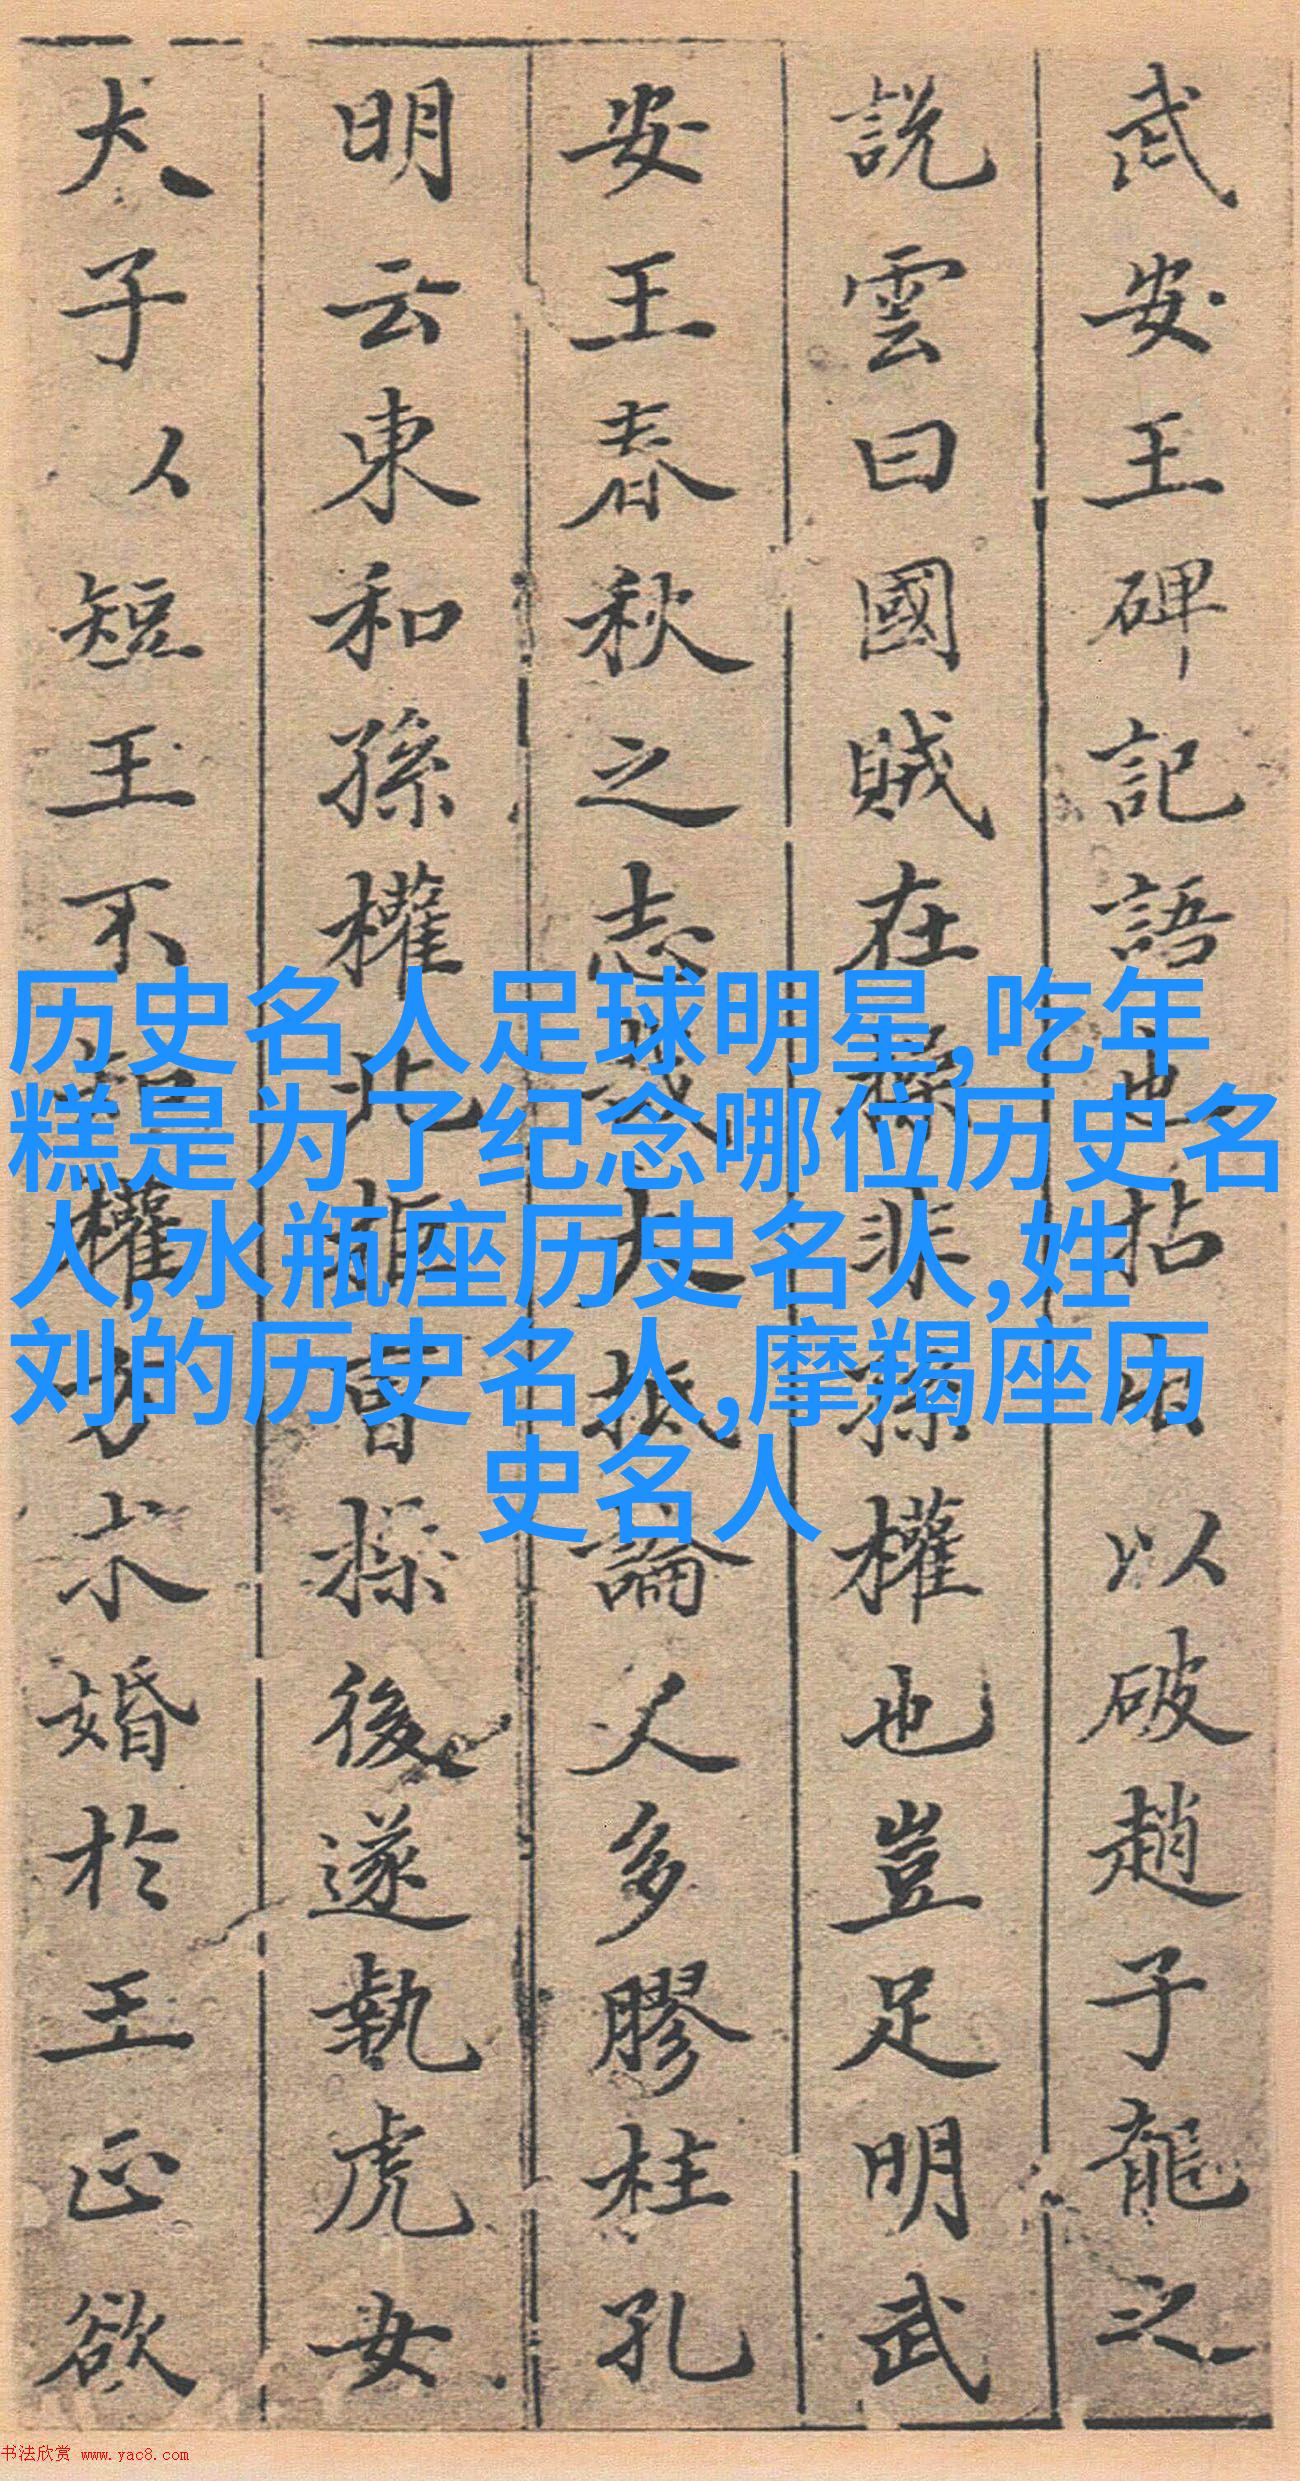 武安王碑記語也拈出以破趙子龍之
說雲曰國賊在操非孫權也豈足明武
安王春秋之志哉大抵論人多膠柱孔
明云東和孫權北拒曹操後遂執虎女
犬子以短王不知權方求婚於王正欲
历史名人足球明星,吃年
糕是为了纪念哪位历史名
人,水瓶座历史名人,姓
刘的历史名人,摩羯座历
史名人
书法欣赏 www.yac8.com